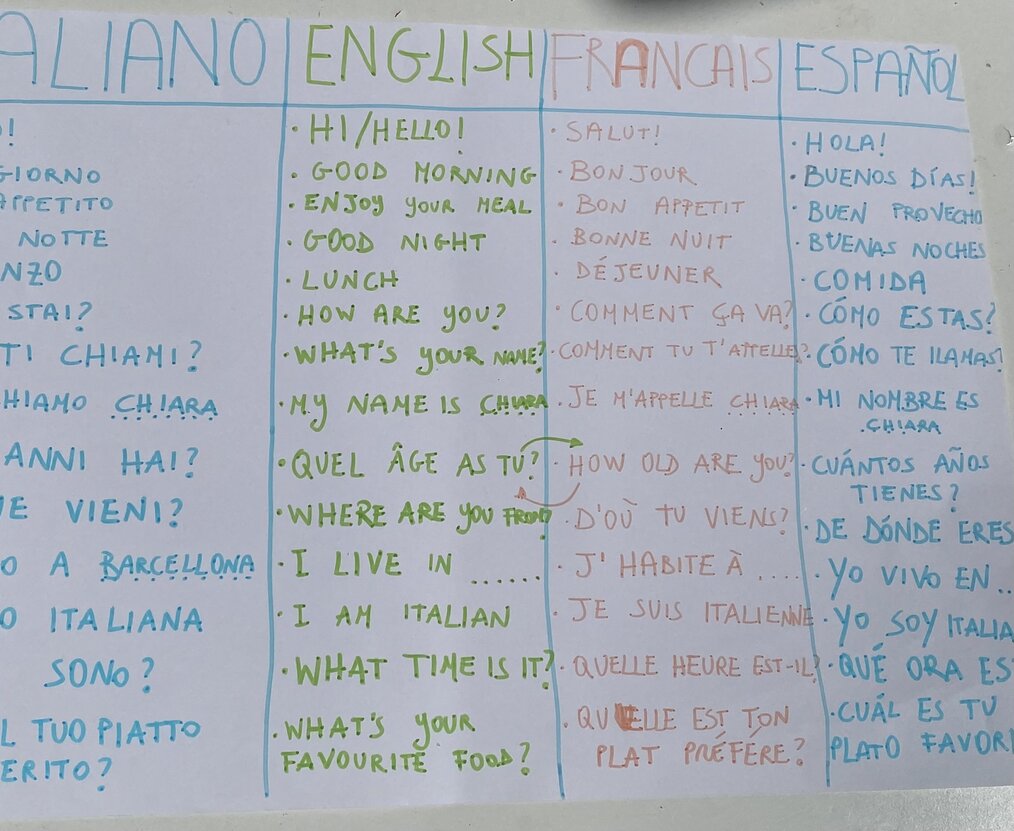 ALIANO ENGLISH FRANCAIS ESPAÑOL
O! · HI/HELLO! · SALUT! · HOLA!
GIORNO · GOOD MORNING · BONJOUR · BUENOS DÍAS!
APPETITO · ENJOY YOUR MEAL · BON APPETIT · BUEN PROVECHO
NOTTE · GOOD NIGHT · BONNE NUIT · BUENAS NOCHES
NZO · LUNCH · DÉJEUNER · COMIDA
STAI? · HOW ARE YOU? · COMMENT ÇA VA? · CÓMO ESTAS?
TI CHIAMI? · WHAT'S YOUR NAME? · COMMENT TU T'APPELLE? · CÓMO TE LLAMAS?
HIAMO CHIARA · MY NAME IS CHIARA · JE M'APPELLE CHIARA · MI NOMBRE ES
CHIARA
ANNI HAI? · QUEL ÂGE AS TU? · HOW OLD ARE YOU? · CUÁNTOS AÑOS
TIENES?
E VIENI? · WHERE ARE YOU FROM? · D'OÙ TU VIENS? · DE DÓNDE ERES
O A BARCELLONA · I LIVE IN ...... · J'HABITE À .... · YO VIVO EN...
O ITALIANA · I AM ITALIAN · JE SUIS ITALIENNE · YO SOY ITALIA
SONO? · WHAT TIME IS IT? · QUELLE HEURE EST-IL? · QUÉ ORA ES
L TUO PIATTO · WHAT'S YOUR · QUELLE EST TON · CUÁL ES TU
ERITO? FAVOURITE FOOD? PLAT PRÉFÉRE? PLATO FAVORI